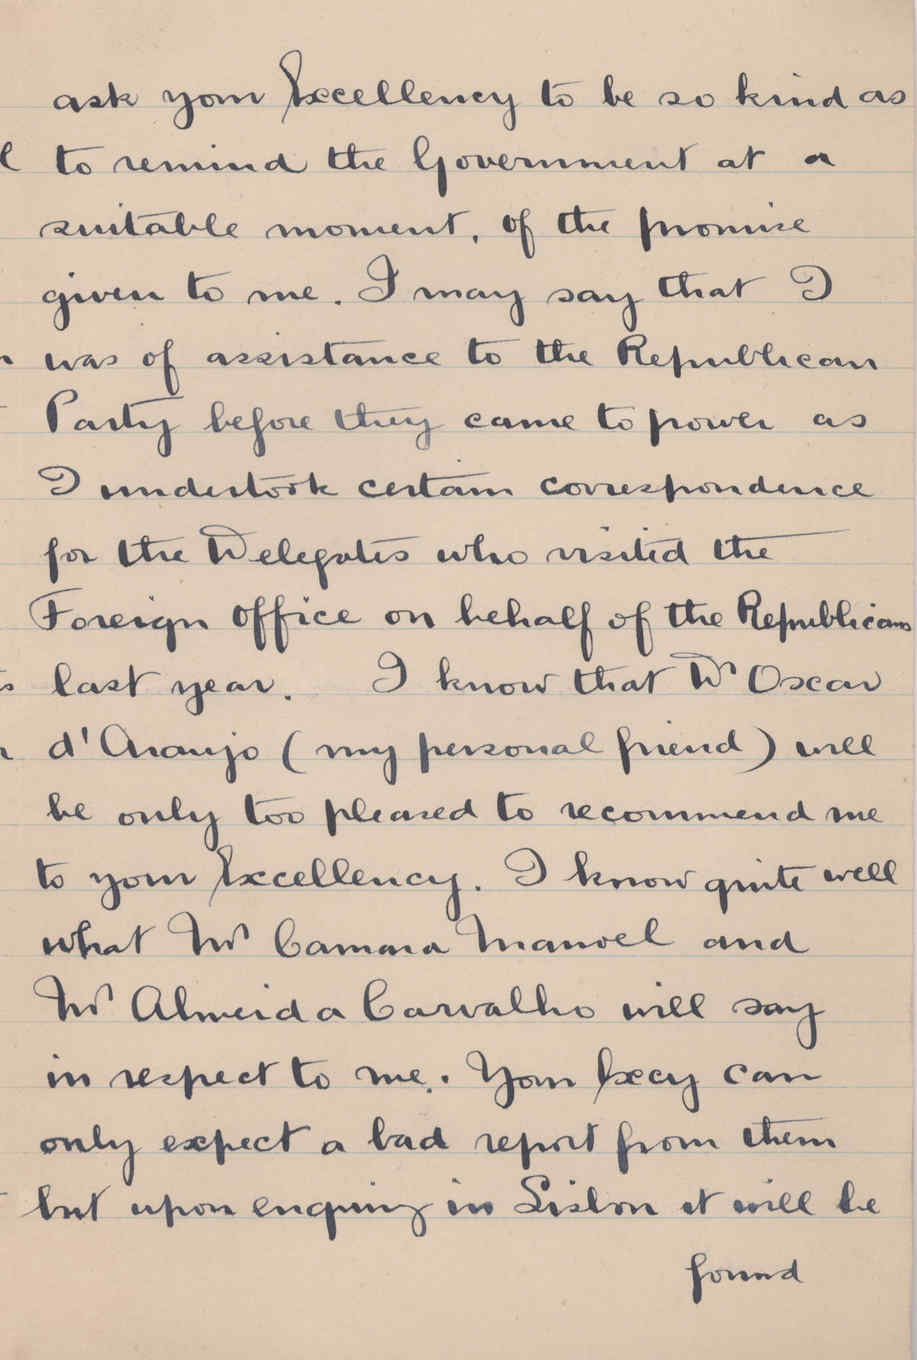 ask your Excellency to be so kind as
to remind the Government at a
suitable moment, of the promise
given to me. I may say that I
was of assistance to the Republican
Party before they came to power as
I undertook certain correspondence
for the Delegates who visited the
Foreign Office on behalf of the Republicans
last year. I know that Dr Oscar
d'Araujo (my personal friend) will
be only too pleased to recommend me
to your Excellency. I know quite well
what Mr Camara Manoel and
Mr Almeida Carvalho will say
in respect to me. Your Excy can
only expect a bad report from them
but upon enquiry in Lisbon it will be
found